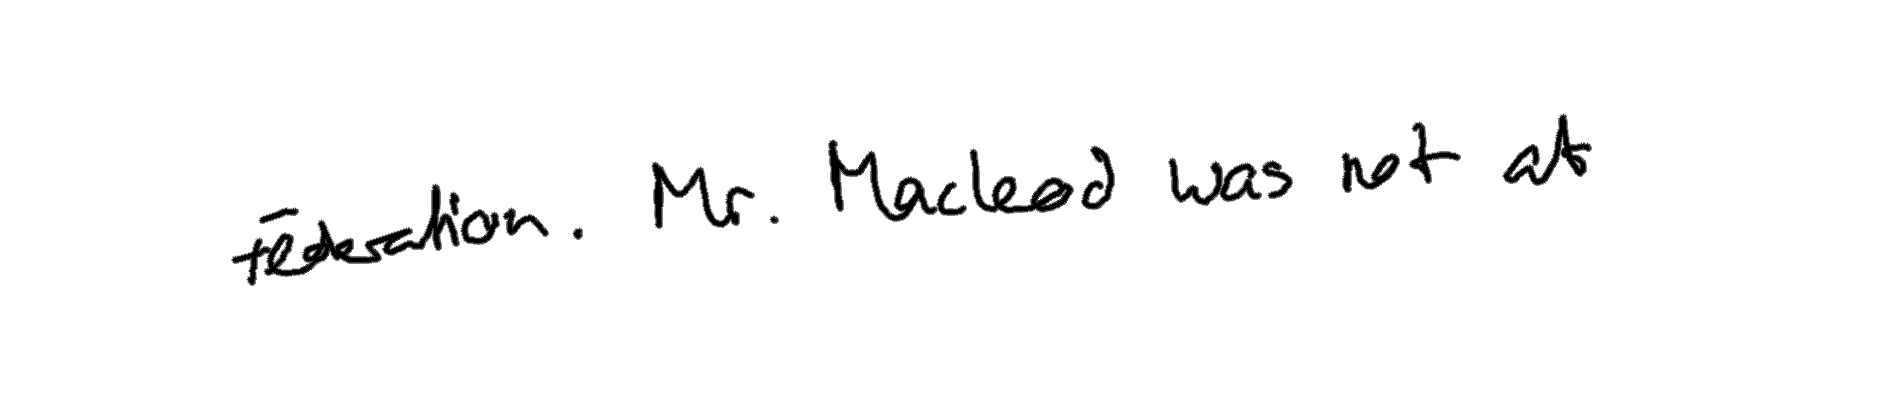 Federation. Mr. Macleod was not at